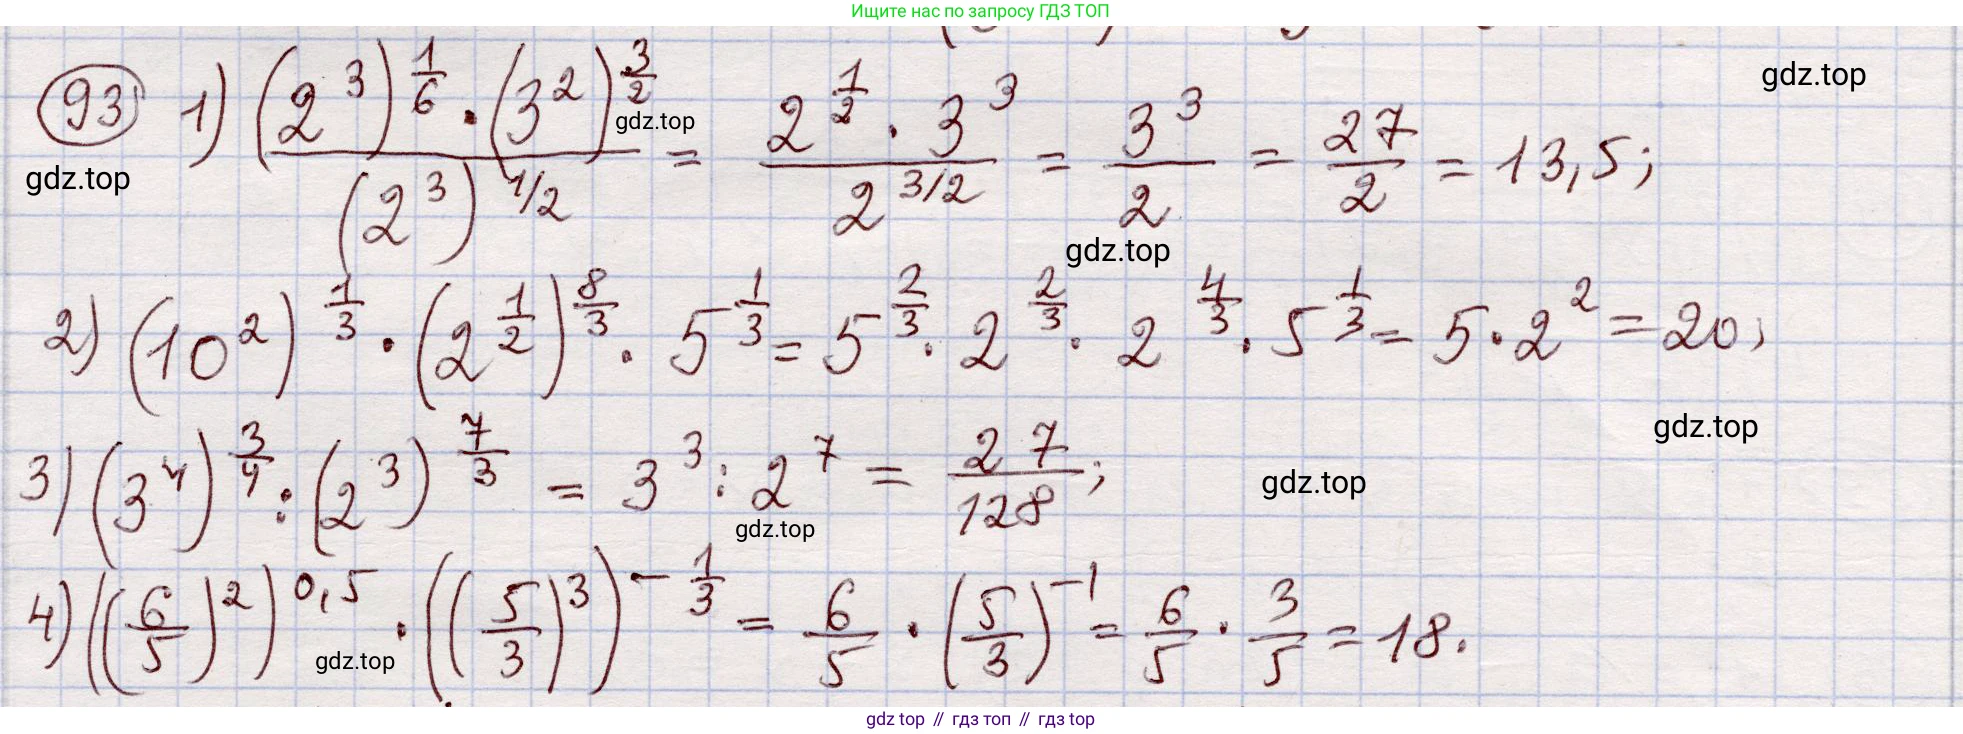 Ищите нас по запросу ГДЗ ТОП
93 1) ((2^3)^(1/6) · (3^2)^(3/2)) / (2^3)^(1/2) = (2^(1/2) · 3^3) / 2^(3/2) = 3^3/2 = 27/2 = 13,5;
gdz.top
gdz.top
gdz.top
gdz.top
2) (10^2)^(1/3) · (2^(1/2))^(8/3) · 5^(1/3) = 5^(2/3) · 2^(2/3) · 2^(4/3) · 5^(1/3) = 5 · 2^2 = 20;
gdz.top
3) (3^4)^(3/4) : (2^3)^(7/3) = 3^3 : 2^7 = 27/128;
gdz.top
gdz.top
4) ((6/5)^2)^0,5 · ((5/3)^3)^(-1/3) = 6/5 · (5/3)^(-1) = 6/5 · 3/5 = 18.
gdz.top
gdz top // гдз топ // гдз top